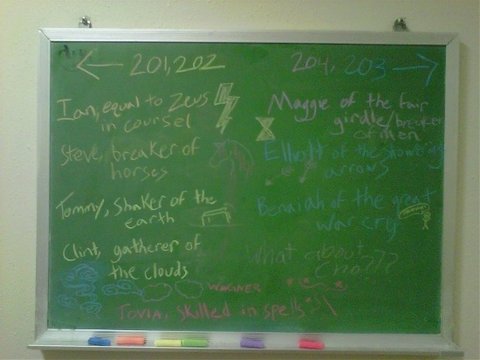 201, 202
204, 203
Ian, equal to Zeus
in counsel
Steve, breaker of
horses
Tommy, Shaker of the
earth
Clint, gatherer of
the clouds
Maggie of the fair
girdle/breaker
of men
Elliott of the showering
arrows
Benaiah of the great
war cry
What about
skilled in spells